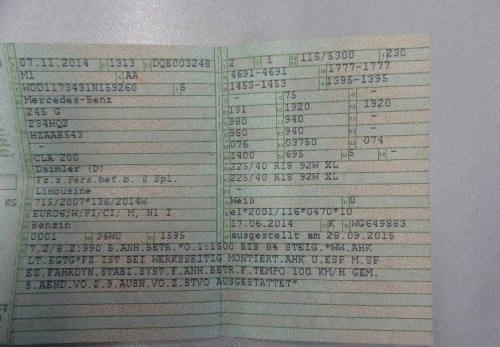 07.11.2014 1313 DQE003248
M1 AA
WDD1173431N159260 5
Mercedes-Benz
245 G
Z34HQ2
HZAAB543
-
CLA 200 -
Daimler (D)
Fz.z.Pers.bef.b. 8 Spl.
Limousine
715/2007*136/2014W
EURO6;W;PI/CI; M, N1 I
Benzin
0001 36W0 1595
2 1 115/5300 230
4691-4691 1777-1777
1453-1453 1395-1395
- 75 -
131 1920 1920
980 940 -
980 940 -
076 03074 -
1400 695 5 -
225/40 R18 92W XL
225/40 R18 92W XL
-
Weiß 0
e1*2001/116*0470*10
17.06.2014 K WG649883
ausgestellt am 28.09.2015
7.2/8.2:990 B.ANH.BETR.*O.1:1500 BIS 8% STEIG.*WW.AHK
LT.EGTG*FZ IST BEI WERKSSEITIG MONTIERT.AHK U.ESP M.SP
EZ.FAHRDYN.STABI.SYST.F.ANH.BETR.F.TEMPO 100 KM/H GEM.
5.AEND.VO.Z.9.AUSN.VO.Z.STVO AUSGESTATTET*